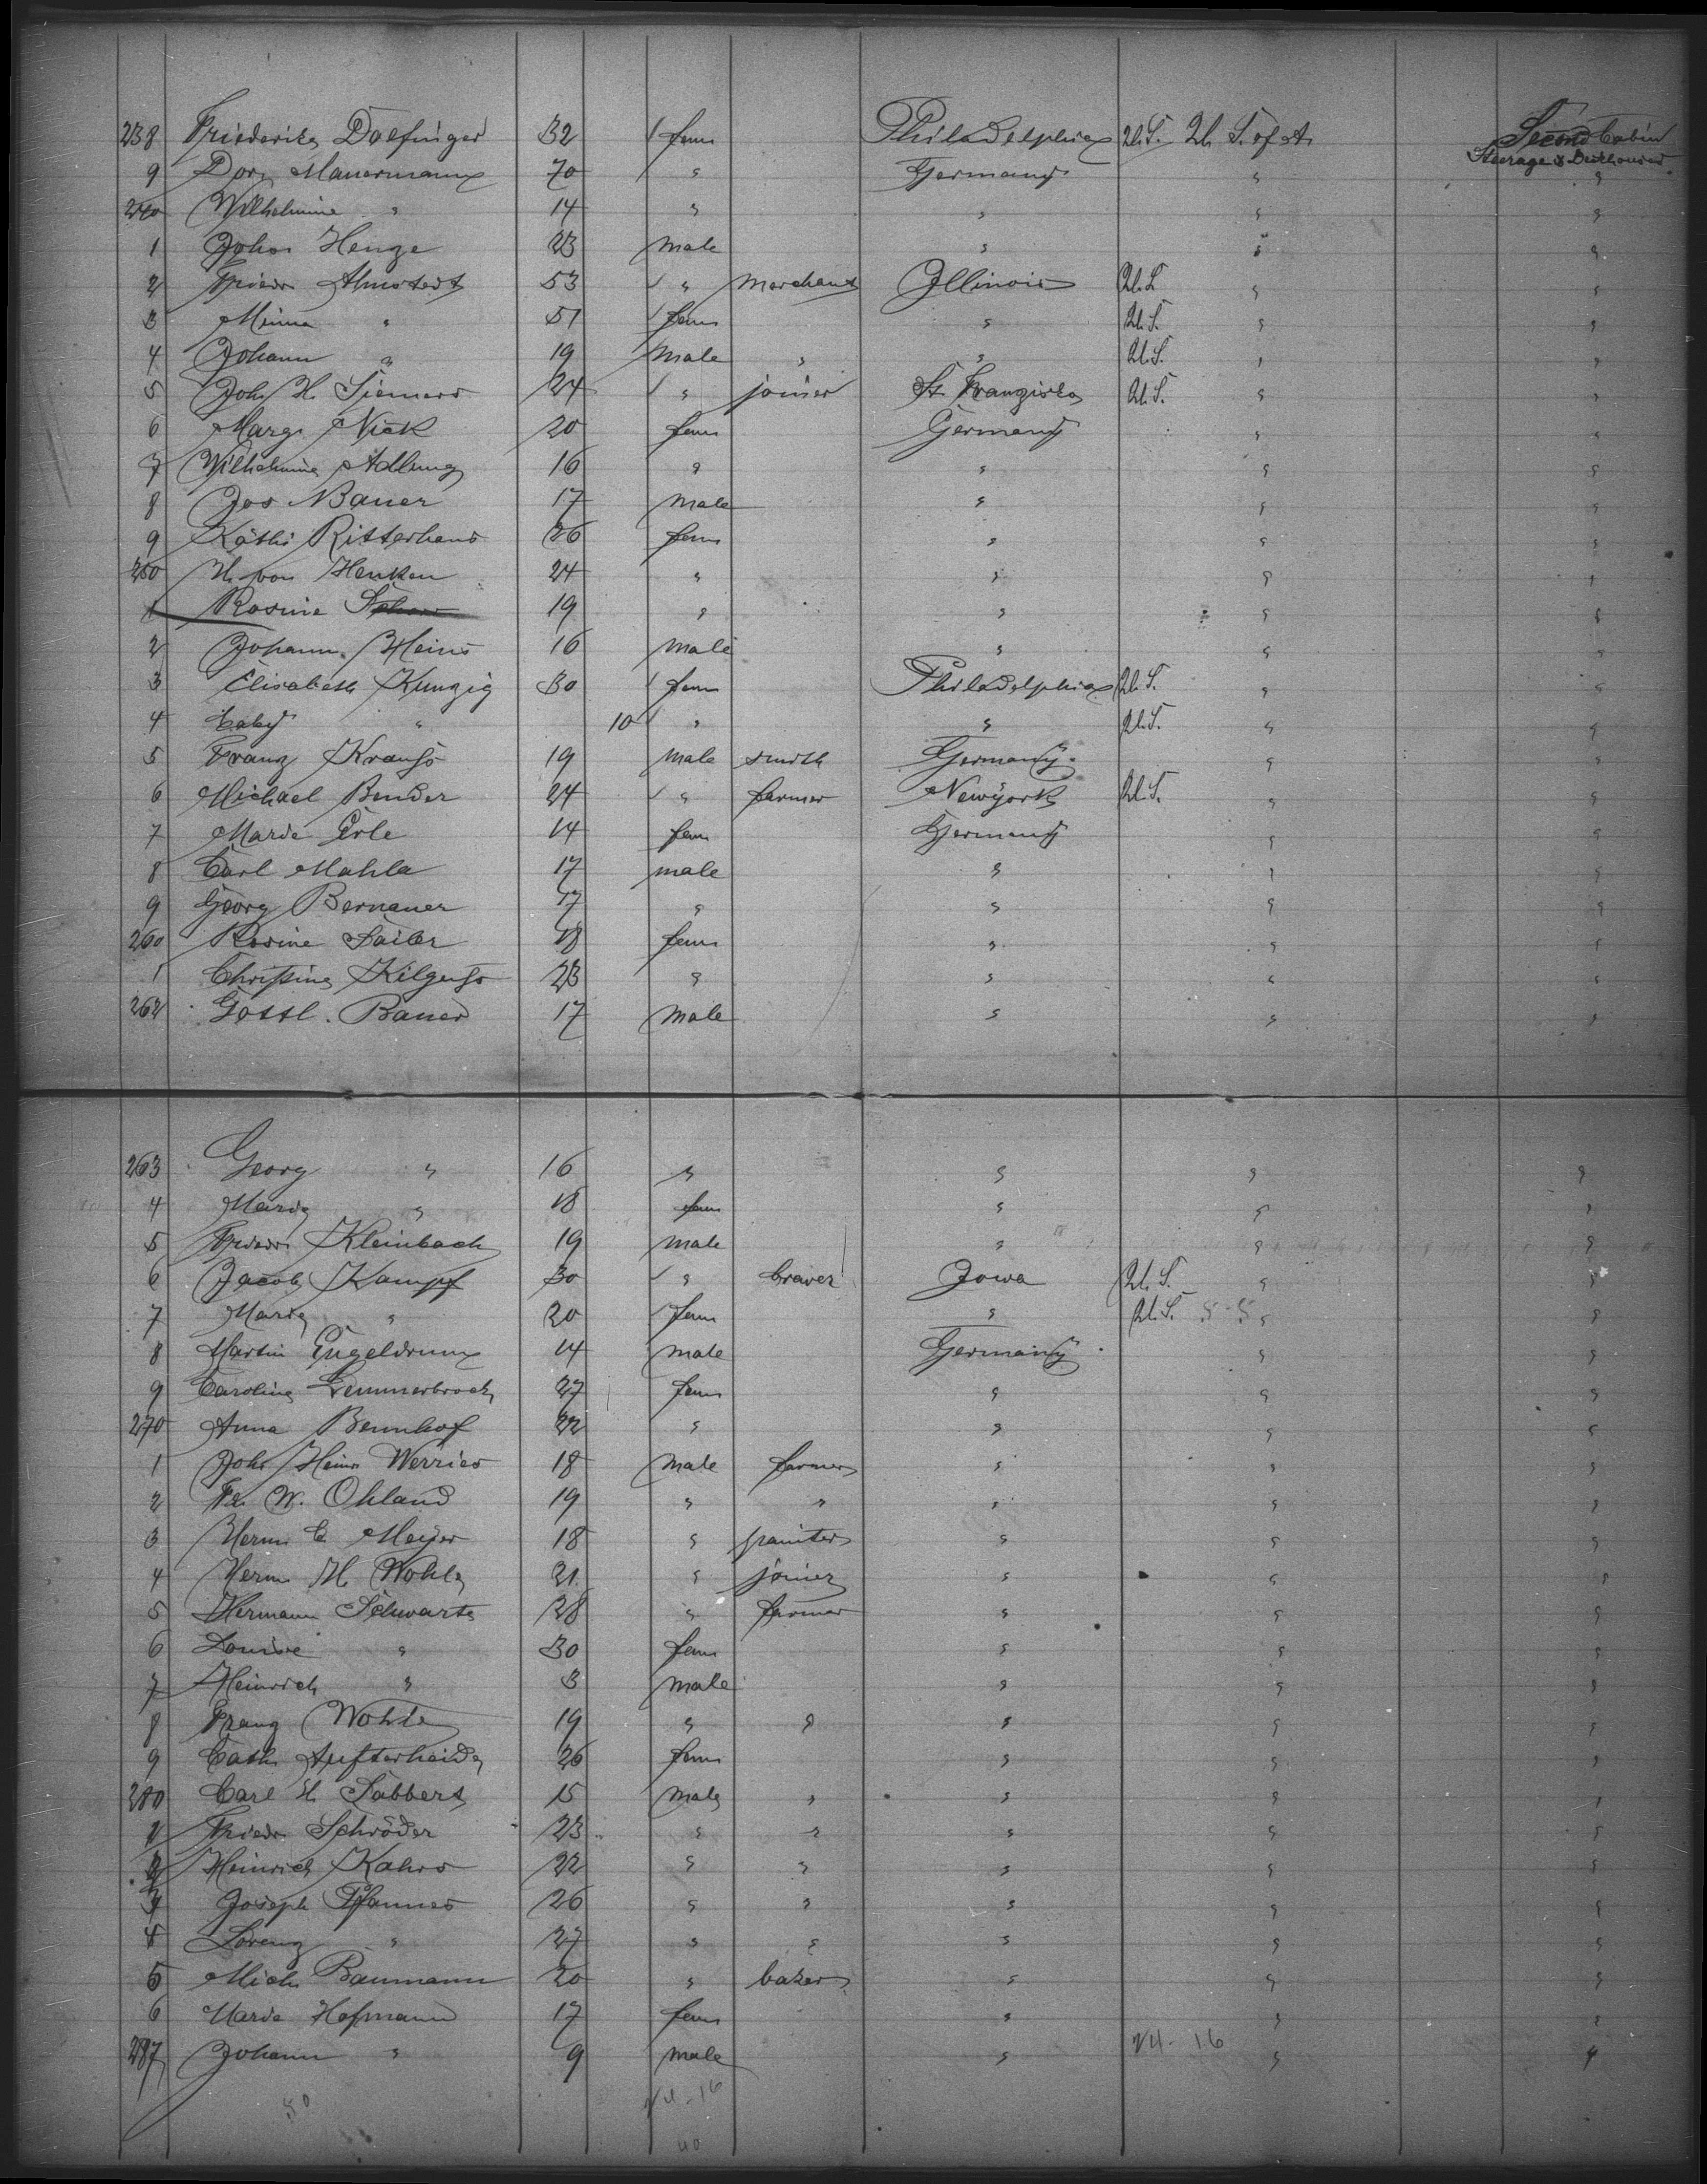 238 Friederike Dolfinger 32 / fem Philadelphia U.S. U. S. of A. Second Cabin
Steerage & Deckhouse
9 Dor. Mauermann 70 " Germany " "
240 Wilhelmine " 14 " " " "
1 Johan Henze 23 male " " "
2 Friedr. Almstedt 53 / " merchant Illinois U.S. " "
3 Minna " 51 / fem " U.S. " "
4 Johann " 19 male " " U.S. " "
5 Joh. H. Siemers 24 / " joiner St. Franzisko U.S. " "
6 Marg. Nick 20 fem Germany " "
7 Wilhelmine Adlung 16 " " " "
8 Jos Bauer 17 male " " "
9 Käthi Ritterhaus 26 fem " " "
250 H. von Henken 24 " " " "
1 Rosine 19 " " " "
2 Johann Heins 16 male " " "
3 Elisabeth Kunzig 30 / fem Philadelphia U.S. " "
4 baby " 10 / " " U.S. " "
5 Franz Krauß 19 male smith Germany " "
6 Michael Bender 24 / " farmer Newyork U.S. " "
7 Maria Erle 14 fem Germany " "
8 Carl Mahla 17 male " " "
9 Georg Bernauer 17 " " " "
260 Rosine Sailer 18 fem " " "
1 Christine Kilguß 23 " " " "
262 Gottl. Bauer 17 male " " "
263 Georg " 16 " " " "
4 Maria " 18 fem " " "
5 Friedr. Kleinbach 19 male " " "
6 Jacob Kampf 30 / " braver Iowa U.S. " "
7 Maria " 20 / fem " U.S. " "
8 Martin Engeldrum 14 male Germany " "
9 Caroline Lemmerbrock 27 fem " " "
270 Anna Bennhof 22 " " " "
1 Joh. Heinr Werries 18 male farmer " " "
2 Fr. W. Ohland 19 " " " " "
3 Herm. C. Meyer 18 " painter " " "
4 Herm H. Wohle 21 " joiner " " "
5 Hermann Schwarte 28 " farmer " " "
6 Louise " 30 fem " " "
7 Heinrich " 3 male " " "
8 Franz Wohle 19 " " " " "
9 Cath. Aufterheide 26 fem " " "
280 Carl H. Sabbert 15 male " " " "
1 Friedr. Schröder 23 " " " " "
2 Heinrich Kahrs 22 " " " " "
3 Joseph Pfanner 26 " " " " "
4 Lorenz " 27 " " " " "
5 Mich. Baumann 20 " baker " " "
6 Maria Hofmann 17 fem " " "
287 Johann " 9 male " 24-16 " "
50 24-16
40